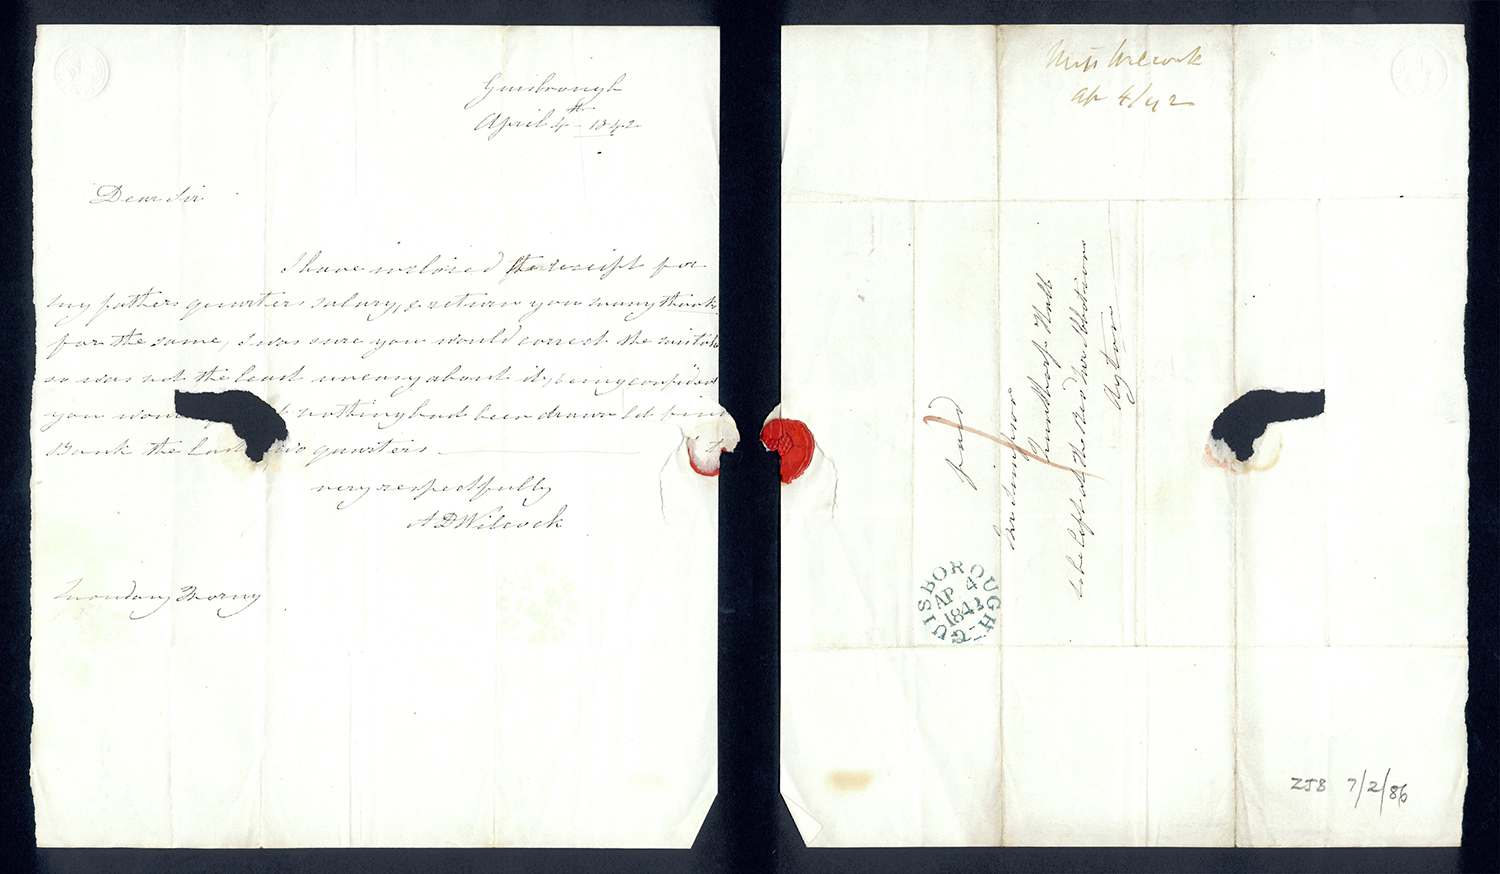 Guisbrough
April 4th - 1842
Dear Sir
I have inclosed the receipt for
my fathers quarters salary, & return you many thanks
for the same, I was sure you would correct the mistake
so was not the least uneasy about it, being confident
you would nothing had been drawn
Bank the last two quarters
very respectfully
A D Wilcock
Monday Morng
Miss Wilcock
Ap 4/42
paid
1
Mr Simpson
Nunthorp Hall
to be left at the Red
Ayton
GUISBOROUGH
AP 4
1842
ZJB 7/2/86